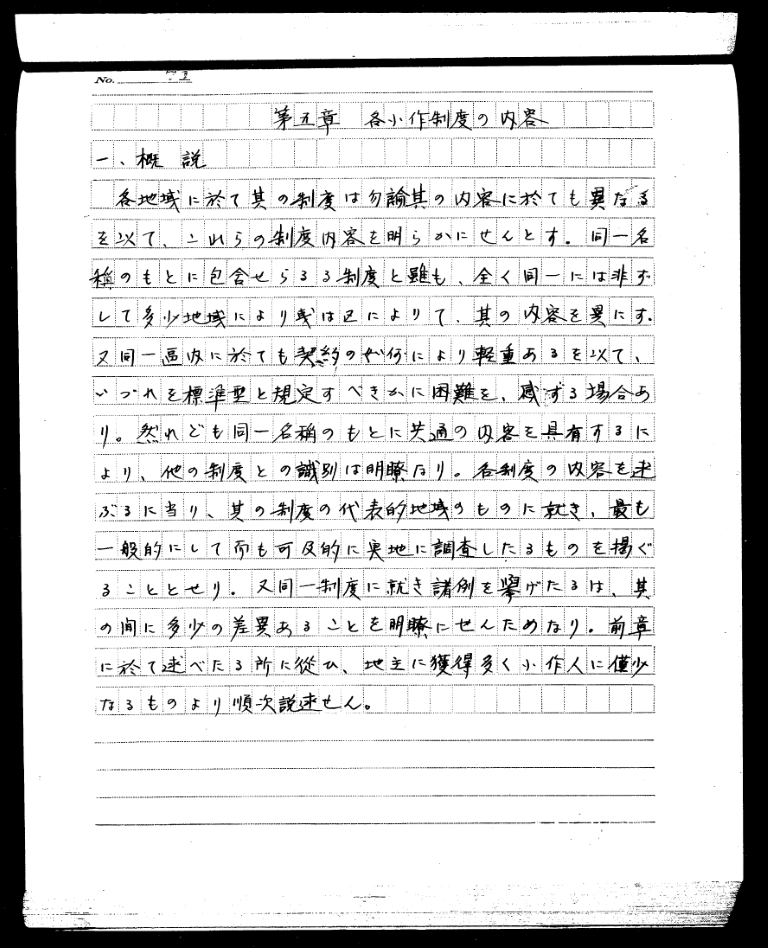 No.
第五章　各小作制度の内容
一、概説
各地域に於て其の制度は勿論其の内容に於ても異なる
を以て、これらの制度内容を明らかにせんとす。同一名
称のもとに包含せらるる制度と雖も、全く同一には非ず
して多少地域により或は区によりて、其の内容を異にす。
又同一區内に於ても契約の如何により軽重あるを以て、
いづれを標準型と規定すべきかに困難を、感ずる場合あ
り。然れども同一名稱のもとに共通の内容を具有するに
より、他の制度との識別は明瞭なり。各制度の内容を述
ぶるに当り、其の制度の代表的地域のものに就き、最も
一般的にして而も可及的に実地に調査したるものを揚ぐ
ることとせり。又同一制度に就き諸例を擧げたるは、其
の間に多少の差異あることを明瞭にせんためなり。前章
に於て述べたる所に從ひ、地主に獲得多く小作人に僅少
なるものより順次説述せん。